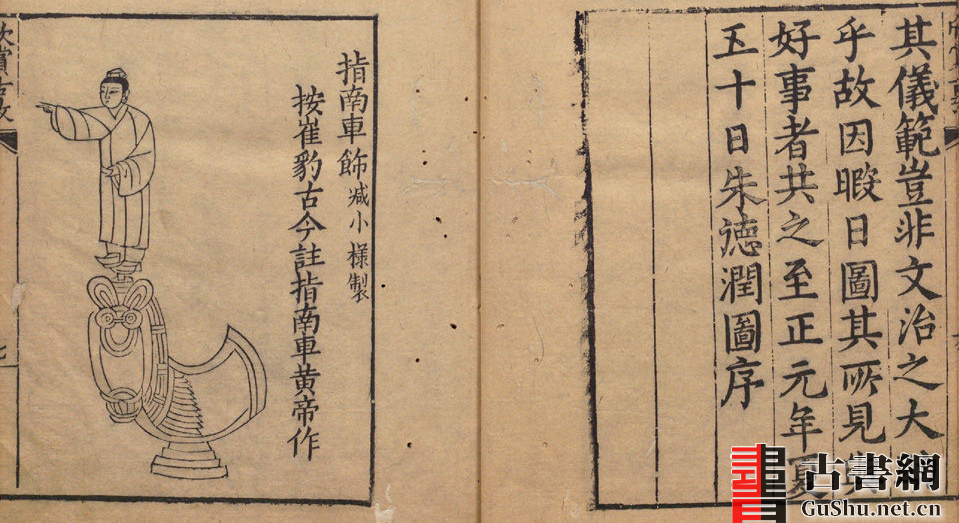 其儀範豈非文治之大
乎故因暇日圖其所見與
好事者共之至正元年夏
五十日朱德潤圖序
指南車飾減小樣製
按崔豹古今註指南車黄帝作
欣賞古玉
七
古書網
GuShu.net.cn